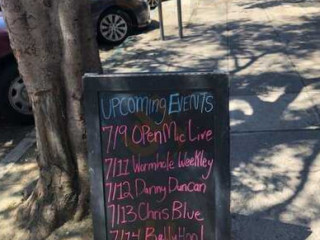 UPCOMING EVENTS
7/9 OPEN Mic Live
7/11 Wormhole Weekley
7/12 Danny Duncan
7/13 Chris Blue
7/14